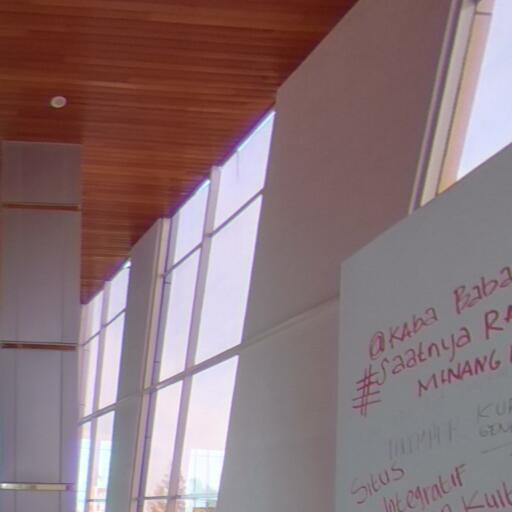 @KABA Baba
#Saatnya RA
MINANG
KUR
GEN
Situs
Integratif
Kult